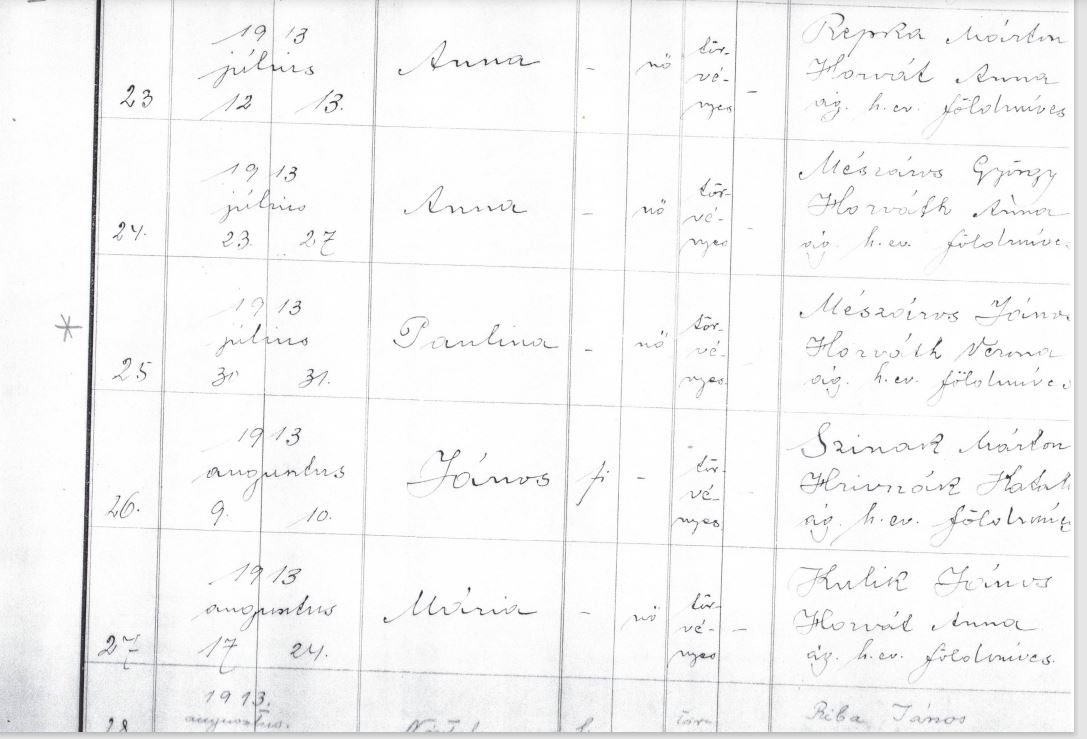 23
1913
július
12 13.
Anna
-
nő
tör-
vé-
nyes
-
Repka Márton
Horvát Anna
ág. h. ev. földmíves
24.
1913
július
23. 27
Anna
-
nő
tör-
vé-
nyes
-
Mészáros György
Horváth Anna
ág. h. ev. földmíve
25
1913
július
31 31.
Paulina
-
nő
tör-
vé-
nyes
-
Mészáros Jáno
Horváth Verona
ág. h. ev. földmíves
26.
1913
augusztus
9. 10.
János
fi
-
tör-
vé-
nyes
-
Szinak Márton
Hrivnák Katal
ág. h. ev. földmíve
27
1913
augusztus
17 24.
Mária
-
nő
tör-
vé-
nyes
-
Kulik János
Horvát Anna
ág. h. ev. földmíves.
28
1913.
augusztus.
Riba János